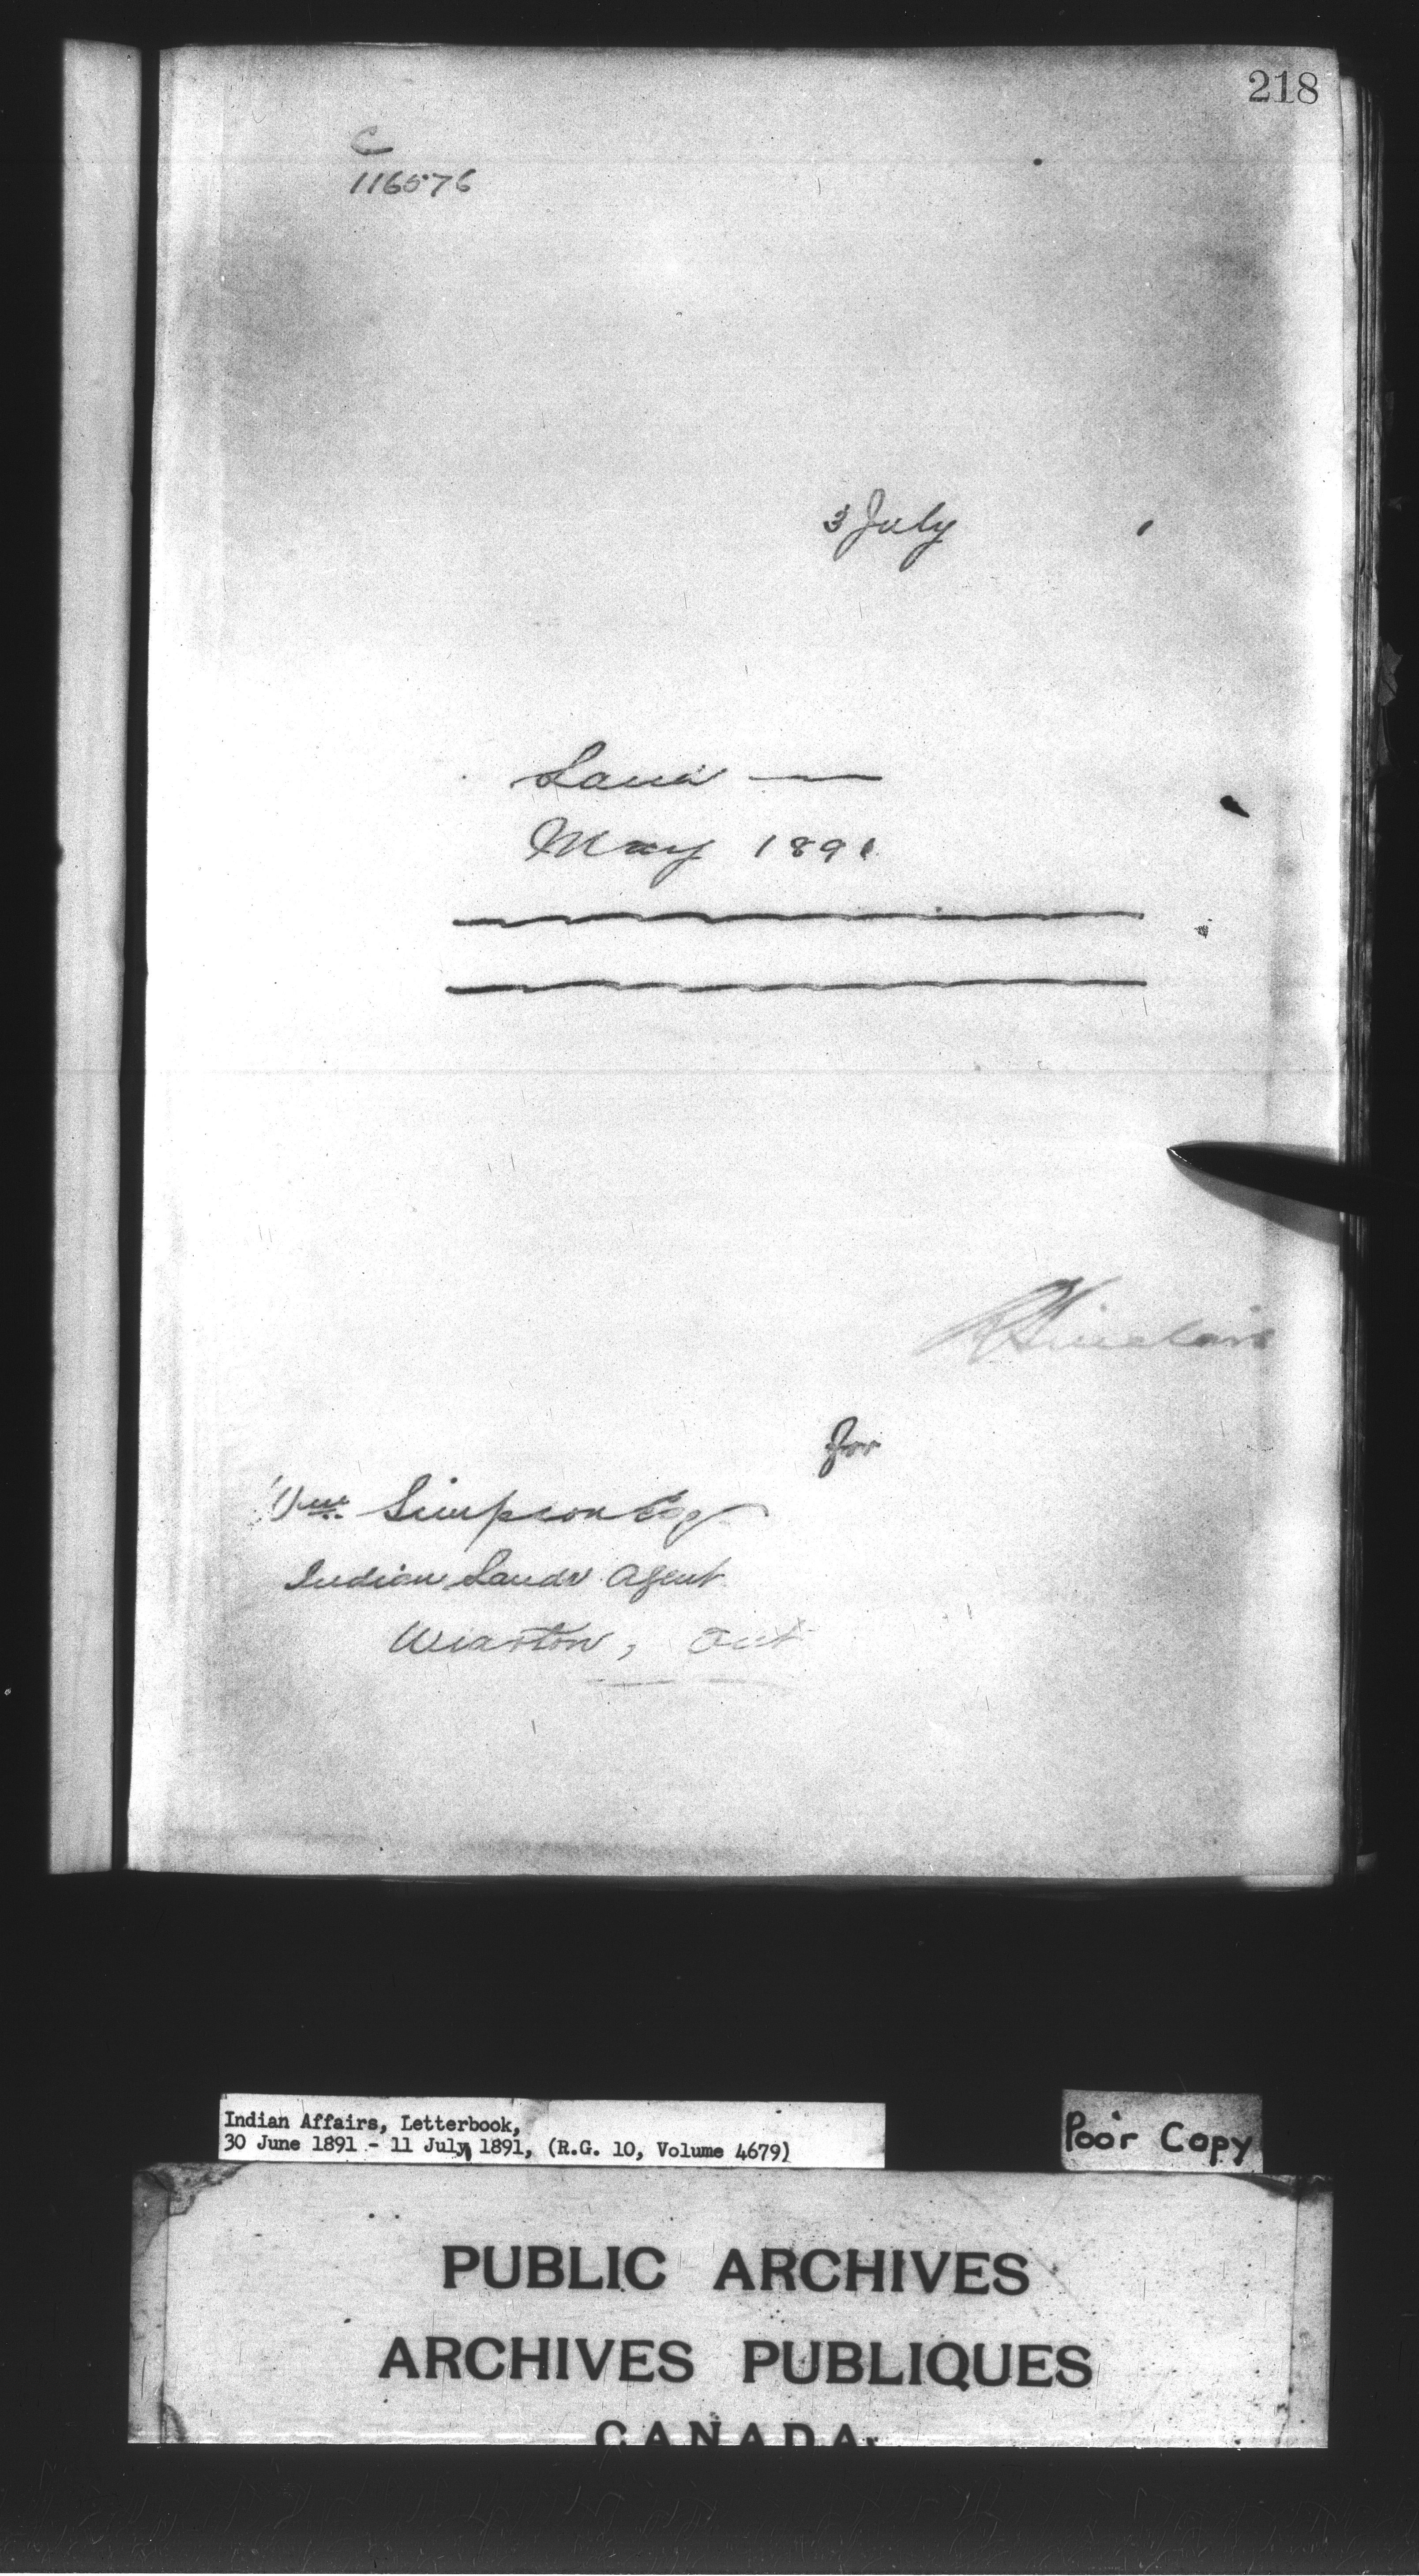 218
C
116576
3 July
Land —
May 1891
R Sinclair
for
Wm. Simpson Esq
Indian Lands Agent
Wiarton, Ont
Indian Affairs, Letterbook,
30 June 1891 - 11 July 1891, (R.G. 10, Volume 4679)
Poor Copy
PUBLIC ARCHIVES
ARCHIVES PUBLIQUES
CANADA